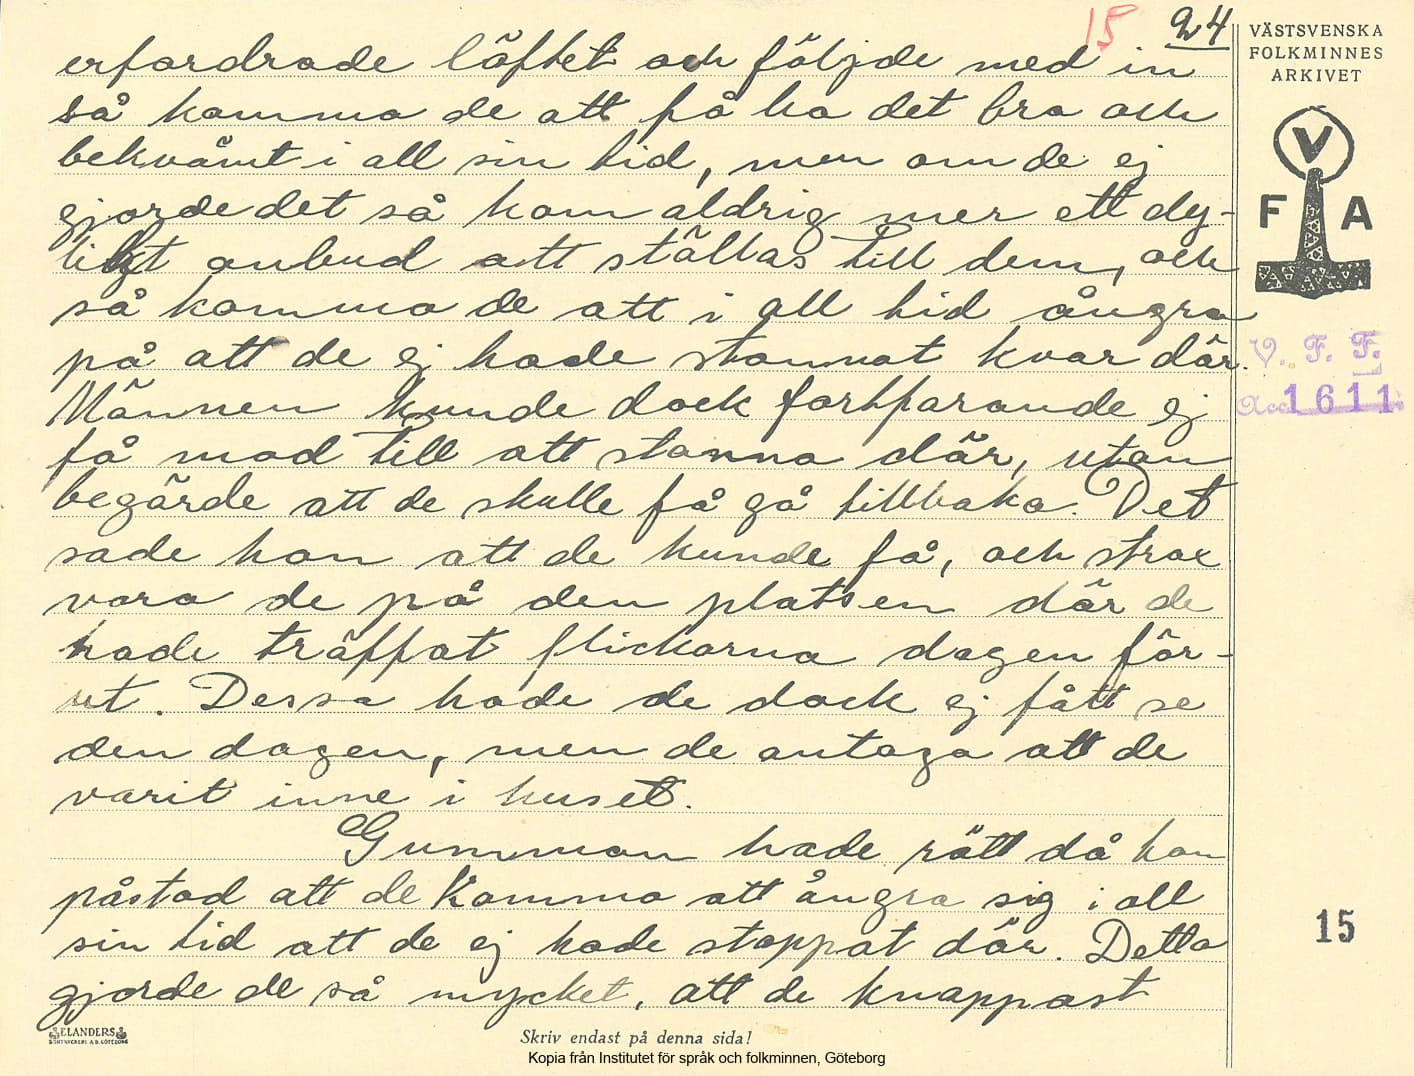 15 24
VÄSTSVENSKA
FOLKMINNES
ARKIVET
V
F A
V. F. F.
Acc 1611
erfordrade löftet och följde med in
så komma de att få ha det bra och
bekvämt i all sin tid, men om de ej
gjorde det så kom aldrig mer ett dy-
likt anbud att ställas till dem, och
så komma de att i all tid ångra
på att de ej hade stannat kvar där.
Männen kunde dock fortfarande ej
få mod till att stanna där, utan
begärde att de skulle få gå tillbaka. Det
sade hon att de kunde få, och strax
voro de på den platsen där de
hade träffat flickorna dagen för-
ut. Dessa hade de dock ej fått se
den dagen, men de antaga att de
varit inne i huset.
Gumman hade rätt då hon
påstod att de komma att ångra sig i all
sin tid att de ej hade stoppat där. Detta
gjorde de så mycket, att de knappast
15
ELANDERS
BOKTRYCKERI A.B. GÖTEBORG
Skriv endast på denna sida!
Kopia från Institutet för språk och folkminnen, Göteborg